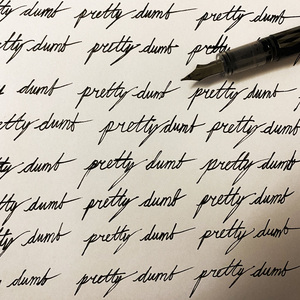 tty dumb pretty dumb pretty
tty dumb pretty dumb pretty
dumb pretty dumb pretty dumb
etty dumb pretty dumb pretty dumb
tty dumb pretty dumb pretty dumb
tty dumb pretty dumb pretty dumb
tty dumb pretty dumb pretty dumb
dumb pretty dumb pretty dumb